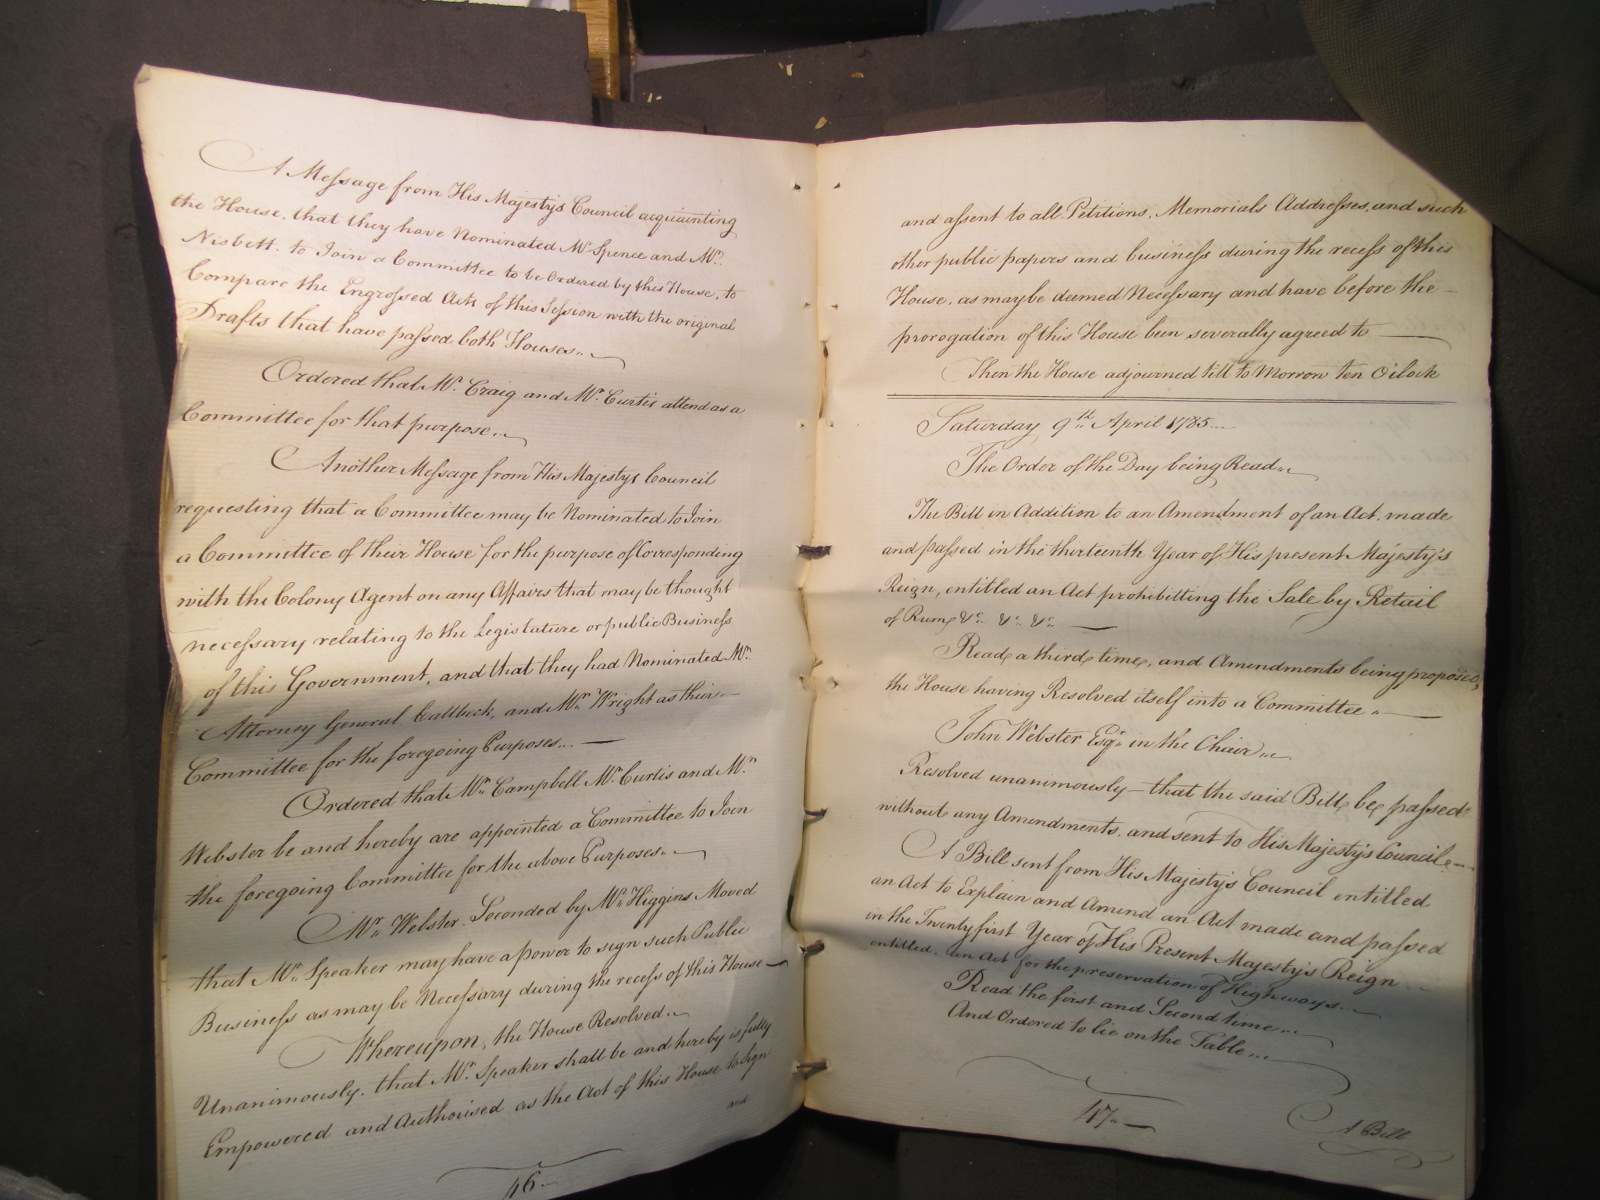 A Message from His Majestys Council acquainting
the House, that they have Nominated Mr. Spence and Mr.
Nisbett. to Join a Committee to be Ordered by this House, to
Compare the Engrossed Acts of this Session with the original
Drafts that have passed both Houses..
Ordered that Mr. Craig and Mr. Curtis attend as a
Committee for that purpose..
Another Message from His Majestys Council
requesting that a Committee may be Nominated to Join
a Committee of their House for the purpose of Corresponding
with the Colony Agent on any Affairs that may be thought
necessary relating to the Legislature or public Business
of this Government, and that they had Nominated Mr.
Attorney General Callbeck, and Mr. Wright as their
Committee for the foregoing Purposes...
Ordered that Mr. Campbell Mr. Curtis and Mr.
Webster be and hereby are appointed a Committee to Join
the foregoing Committee for the above Purposes..
Mr. Webster. Seconded by Mr. Higgins Moved
that Mr. Speaker may have a power to sign such Public
Business as may be Necessary during the recess of this House
Whereupon, the House Resolved..
Unanimously. that Mr. Speaker shall be and hereby is fully
Empowered and Authorised as the Act of this House to Sign
and
46
and assent to all Petitions, Memorials Addresses, and such
other public papers and business during the recess of this
House, as may be deemed Necessary and have before the
prorogation of this House been severally agreed to
Then the House adjourned till to Morrow ten O'Clock
Saturday 9th. April 1785...
The Order of the Day being Read..
The Bill in Addition to an Amendment of an Act, made
and passed in the thirteenth Year of His present Majesty's
Reign, entitled an Act prohibitting the Sale by Retail
of Rum &c. &c. &c.
Read a third time, and Amendments being proposed,
the House having Resolved itself into a Committee..
John Webster Esqr. in the Chair..
Resolved unanimously — that the said Bill be passed
without any Amendments, and sent to His Majesty's Council..
A Bill sent from His Majesty's Council entitled
an Act to Explain and Amend an Act made and passed
in the Twenty first Year of His Present Majesty's Reign
entitled. an Act for the preservation of Highways..
Read the first and Second time...
And Ordered to lie on the Table...
47
A Bill